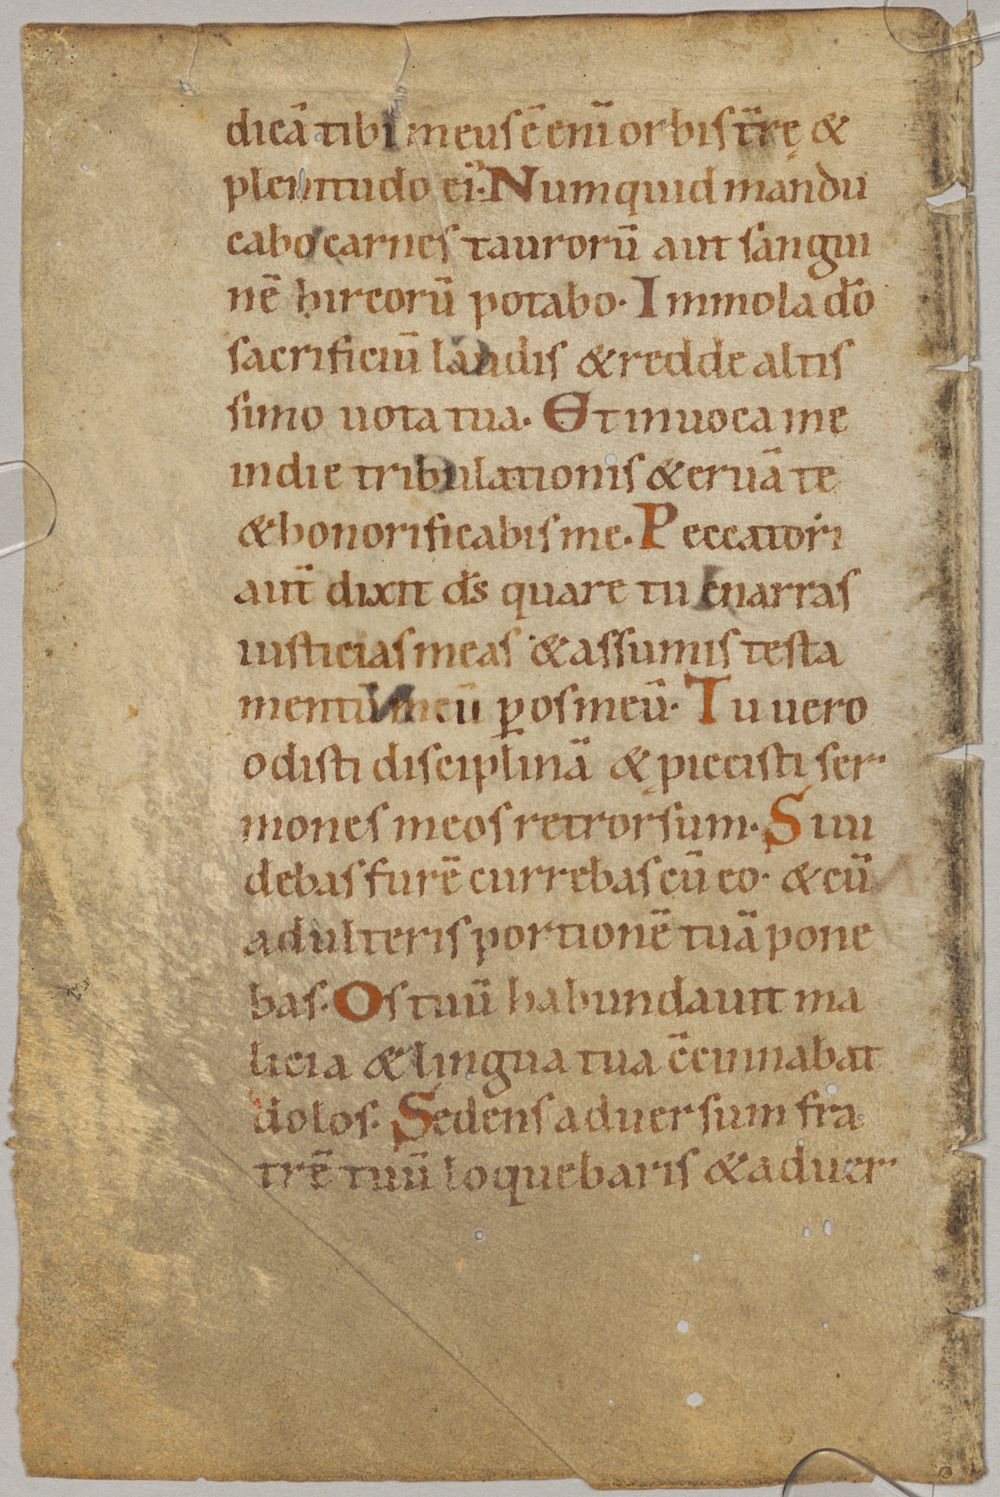 dicā tibi meus ē enī orbis tr̄ę &
plenitudo ei᾽. Numquid mandu
cabo carnes taurorū aut sangui
nē hircorū potabo. Immola do̅
sacrificiū laudis & redde altis
simo uota tua. Et inuoca me
in die tribulationis & eruā te
& honorificabis me. Peccatori
aut̄ dixit ds̄ quare tu enarras
iusticias meas & assumis testa
mentū meū ꝑ os meū. Tu uero
odisti disciplinā & ꝓiecisti ser
mones meos retrorsum. Si ui
debas furē currebas cū eo. & cū
adulteris portionē tuā pone
bas. Os tuū habundauit ma
licia & lingua tua c̄cinnabat
dolos. Sedens aduersum fra
trē tuū loquebaris & aduer